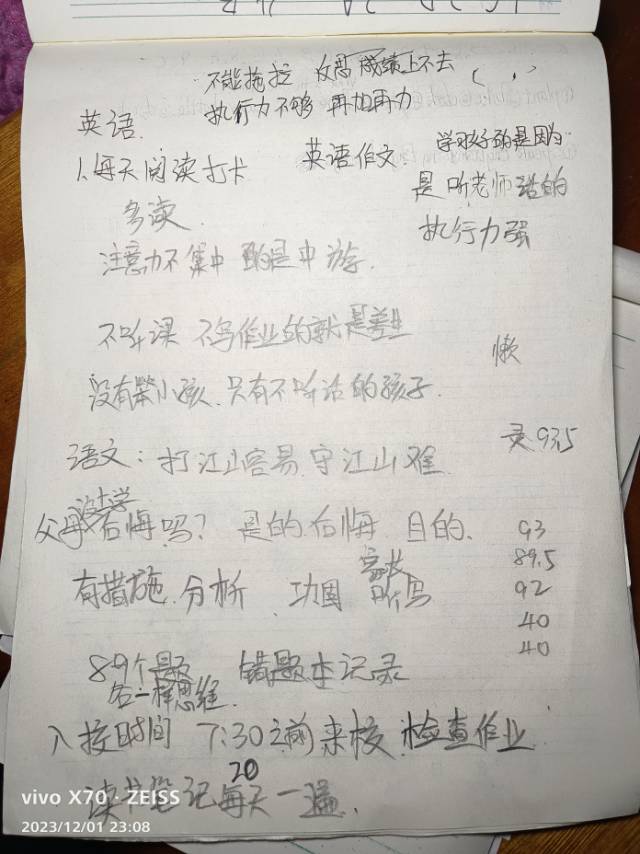 不能拖拉 成绩上不去
执行力不够 再加再力
英语
1、每天阅读打卡 英语作文
学习好的是因为
是听老师话的
多读
执行力强
注意力不集中 的是中游
不听课 不写作业的就是差生
懒
没有笨小孩、只有不听话的孩子
语文：打江山容易 守江山难
录93.5
没上学
父母后悔吗？是的、后悔 目的、
93
89.5
有措施、分析
92
40
40
89个题 错题本记录
各一样思维
入校时间 7:30之前来校 检查作业
读书笔记每天一遍
20
vivo X70 · ZEISS
2023/12/01 23:08